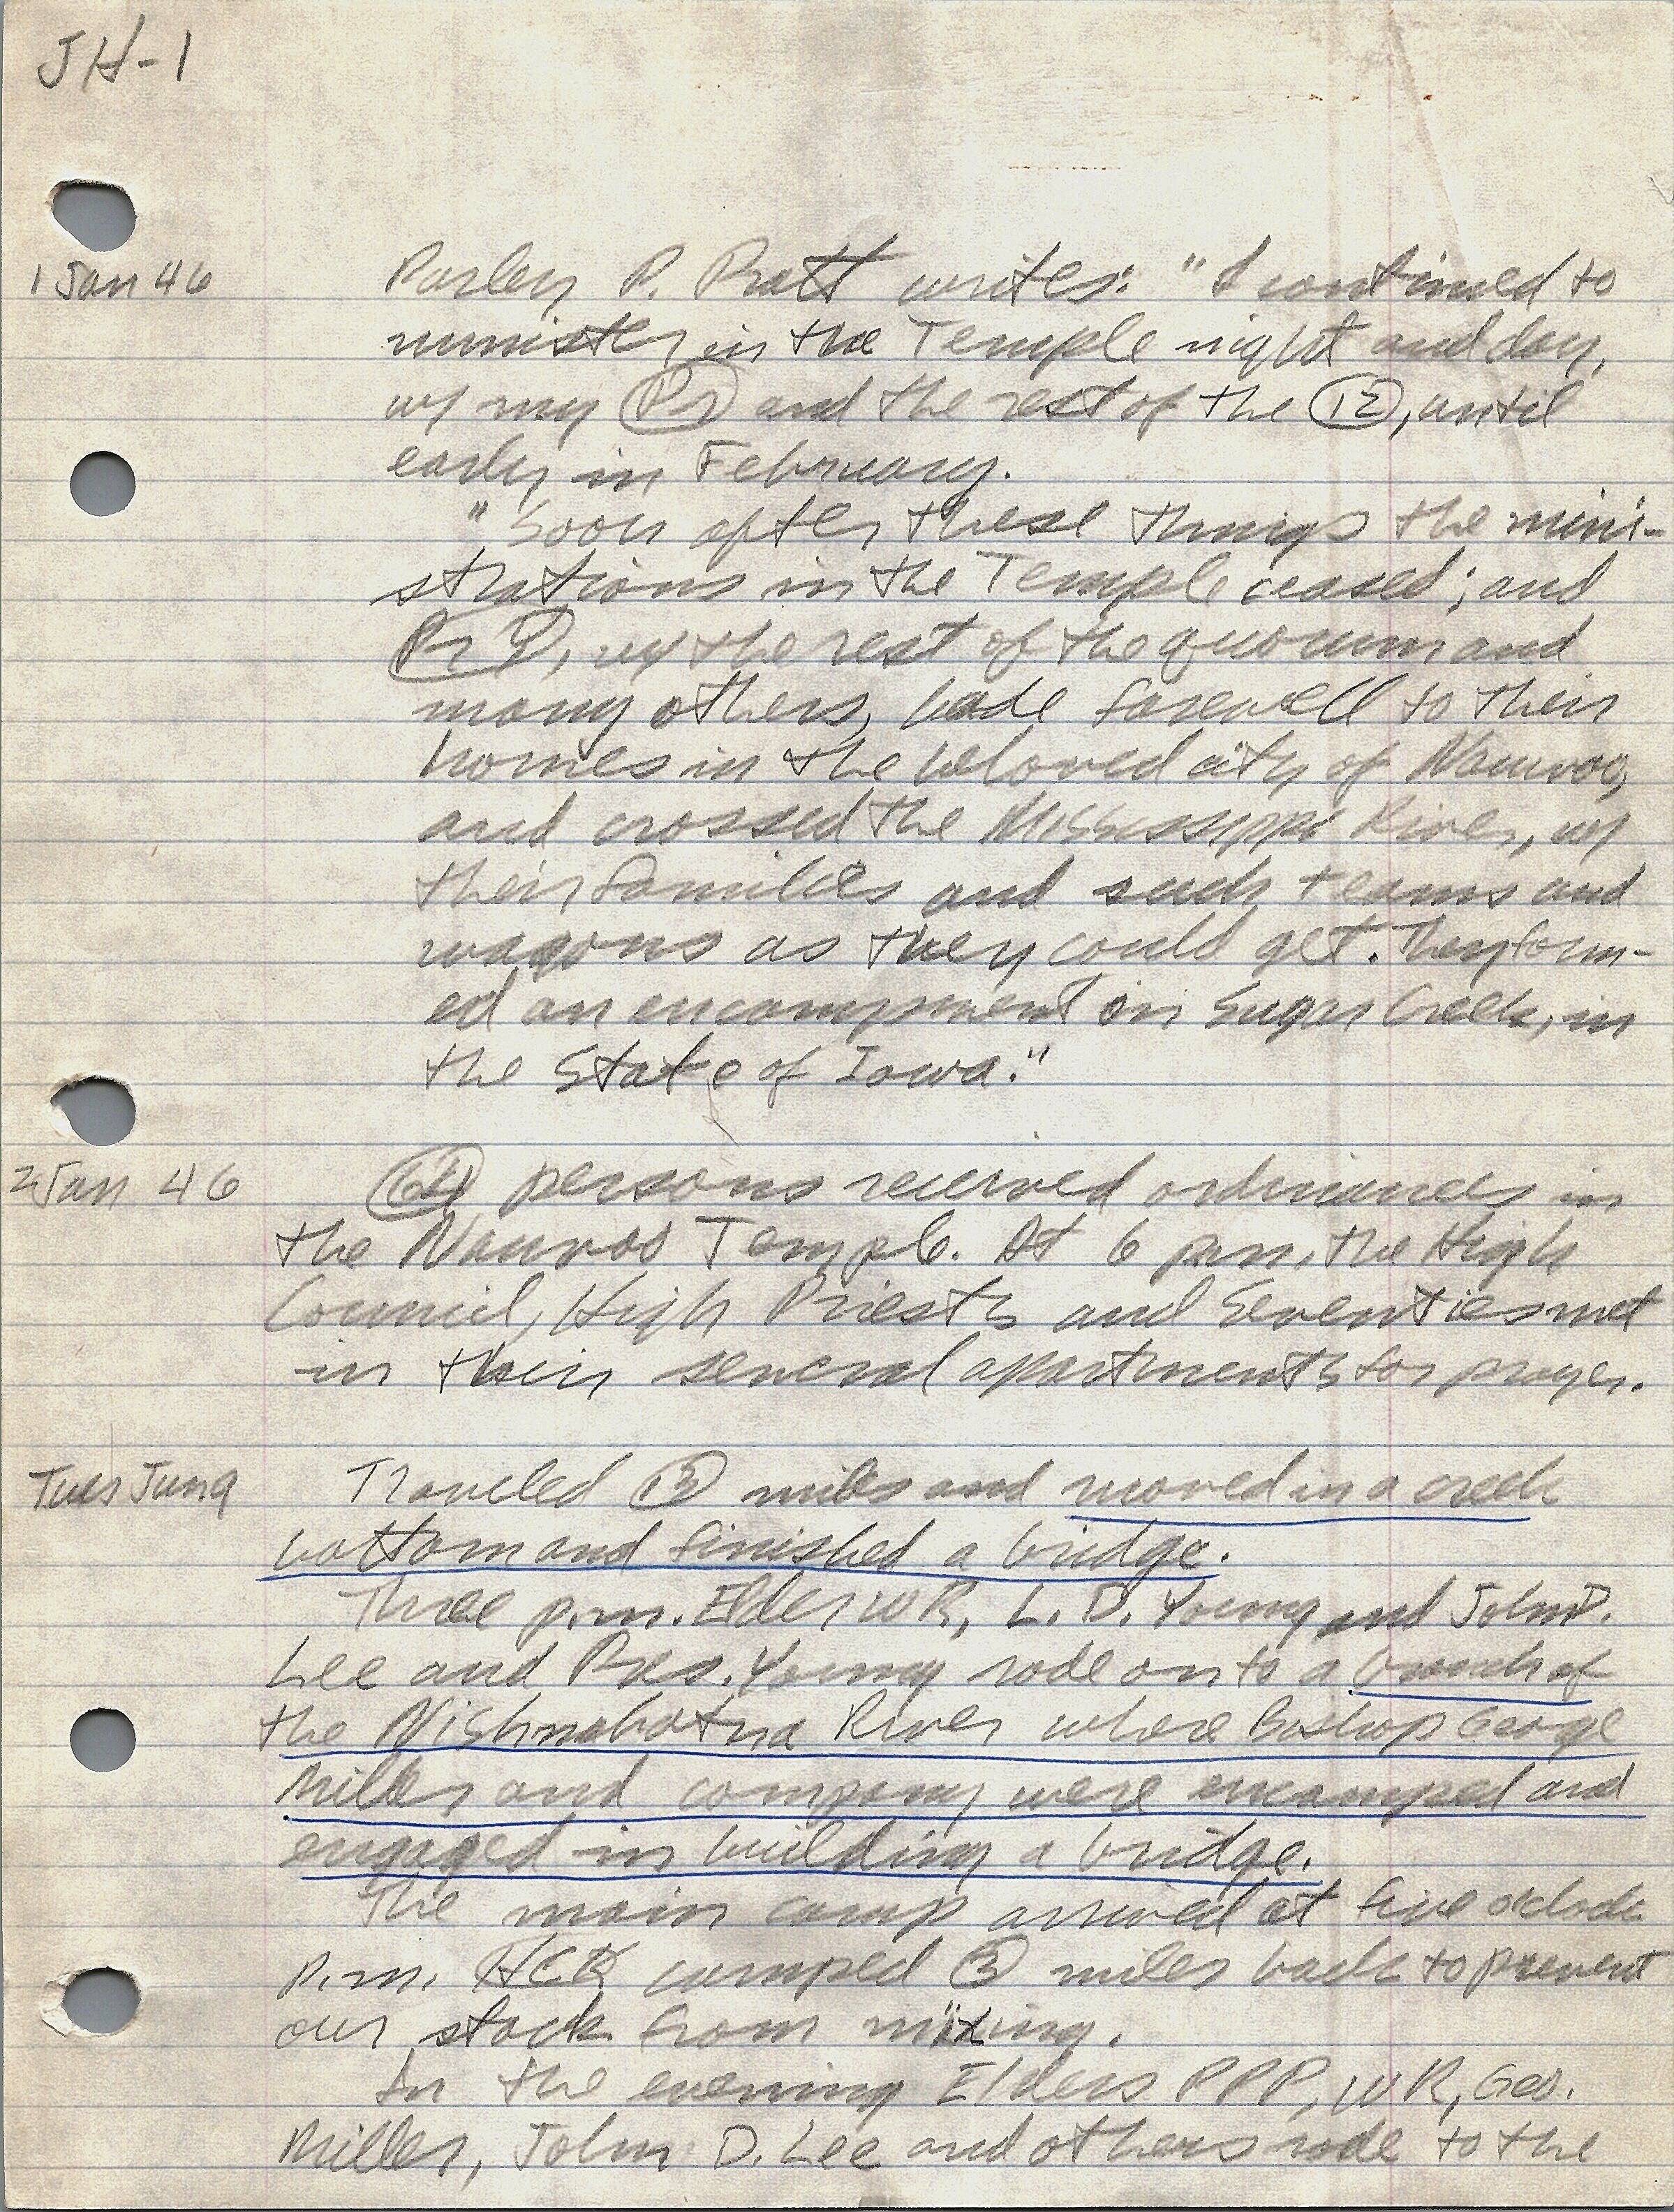 JH-1
1 Jan 46 Parley P. Pratt writes: "I continued to
minister in the Temple night and day,
w/ my Pr and the rest of the 12, until
early in February.
"Soon after these things the mini-
strations in the Temple ceased; and
Pr Y, w/ the rest of the quorum and
many others, bade farewell to their
homes in the beloved city of Nauvoo,
and crossed the Mississippi River, w/
their families and such teams and
wagons as they could get. They form-
ed an encampment on Sugar Creek, in
the State of Iowa."
2 Jan 46 64 persons received ordinances in
the Nauvoo Temple. At 6 p.m. the High
Council, High Priests and Seventies met
in their several apartments for prayer.
Tues Jun 9 Traveled 13 miles and moved in a creek
bottom and finished a bridge.
Three p.m. Elder WR, L. D. Young and John D.
Lee and Pres. Young rode on to a branch of
the Nishnabotna River where Bishop George
Miller and company were encamped and
engaged in building a bridge.
The main camp arrived at five o'clock
p.m. HCK camped 3 miles back to prevent
our stock from mixing.
In the evening Elders PPP, WR, Geo.
Miller, John D. Lee and others rode to the